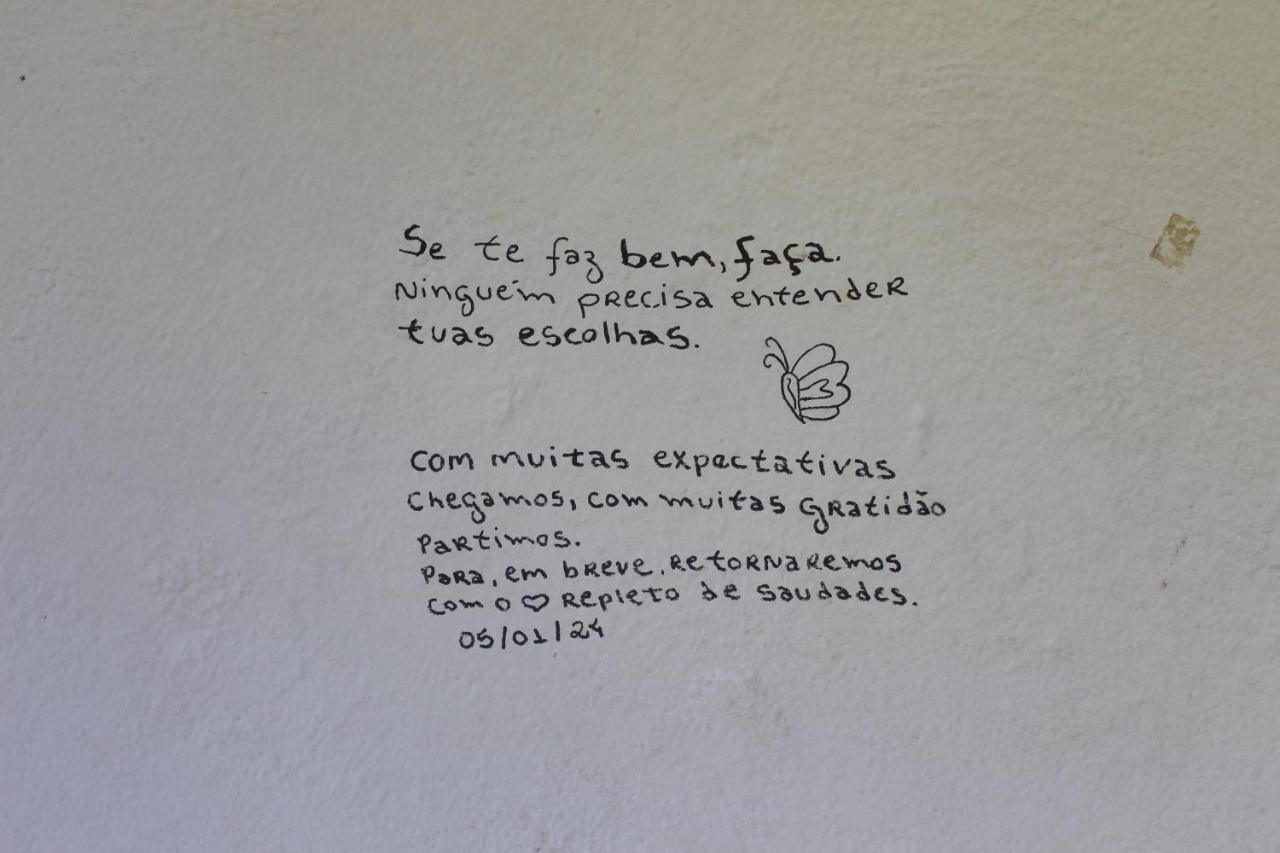 Se te faz bem, faça.
Ninguém precisa entender
tuas escolhas.
com muitas expectativas
chegamos, com muitas gratidão
partimos.
Para, em breve, retornaremos
com o ♡ repleto de saudades.
05/01/24